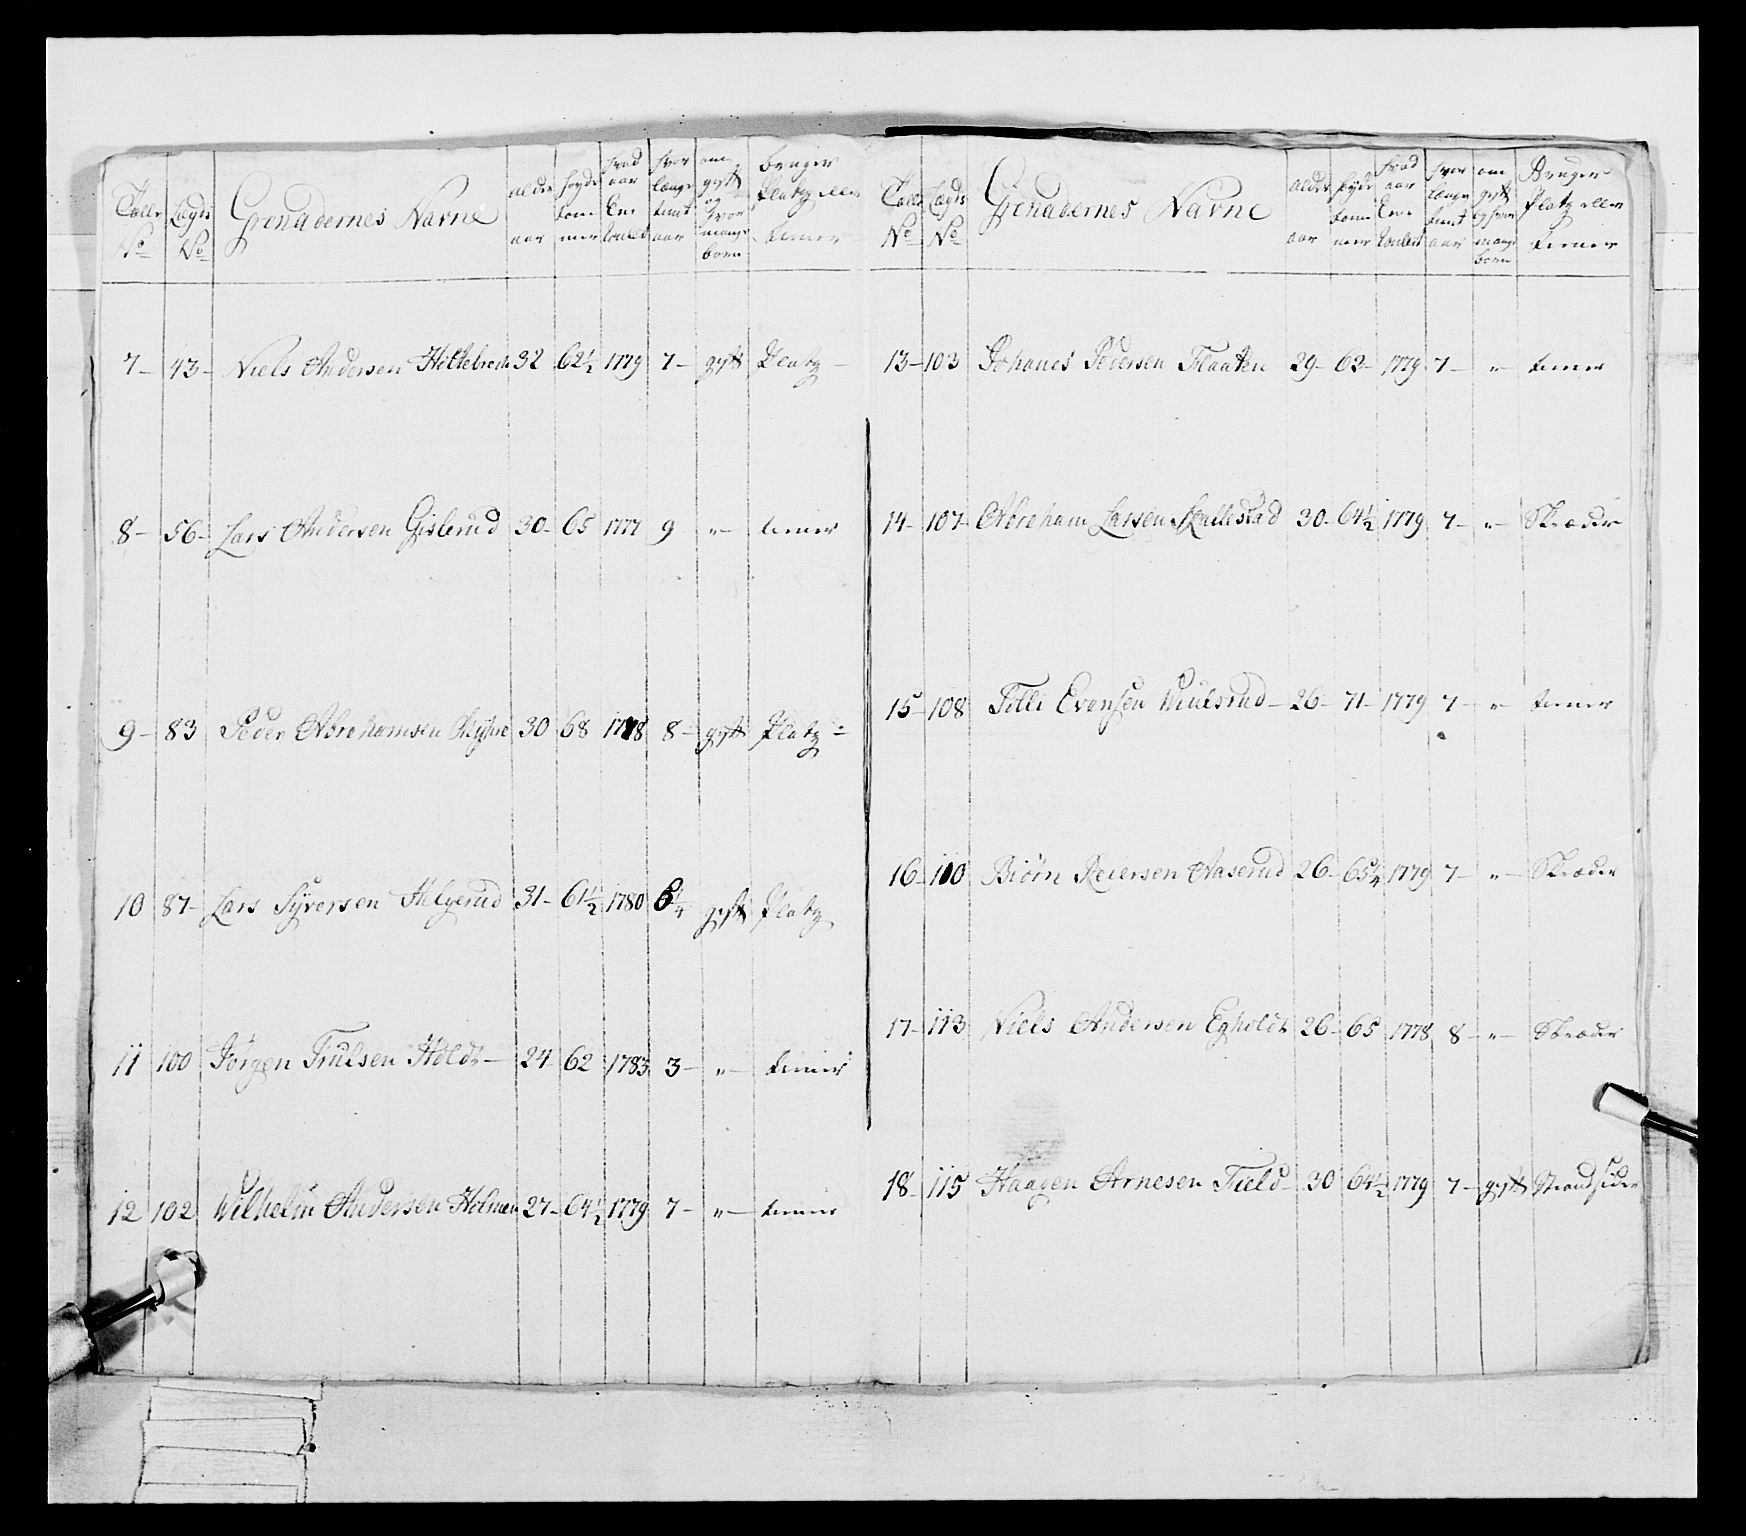 Talle No Lægds No Grenadernes Navne alder aar høyde tommer hvad aar Enroulert hvor længe tient aar om gyft og hvor mange børn bruger Platz eller tiener
7 – 43 – Niels Andersen Holtebrech 32 62½ 1779 7 – gyft Platz –
8 – 56 – Lars Andersen Gislerud 30 – 65 1777 9 „ – tiener
9 – 83 Peder Abrahamsen 30 68 1778 8 – gyft Platz
10 87 – Lars Syversen Helgerud 31 – 61½ 1780 6¼ gyft Platz
11 100 Jørgen Trulsen Holdt – 24 62 1783 3 – „ – tiener
12 102 Wilhelm Andersen Holmen 27 – 64½ 1779 7 – „ – tiener
Talle No Lægds No Grenadernes Navne alder aar høyde tommer hvad aar Enroulert hvor længe tient aar om gyft og hvor mange børn Bruger Platz eller tiener
13 – 103 Johanes Pedersen Flaaten 29 – 62 – 1779 7 – „ – tiener
14 – 107 – Abraham Larsen Skallestad 30 – 64½ 1779 7 – „ – Skræder
15 – 108 Tolli Evensen Wiulsrud – 26 – 71 – 1779 7 – „ – tiener
16 – 110 Biørn Reiersen Aaserud 26 – 65¼ 1779 7 – „ – Skræder
17 – 113 Niels Andersen Egholdt 26 – 65 1778 8 – „ – Skræder
18 – 115 Haagen Arnesen Field – 30 64½ 1779 7 – gyft Strandsider